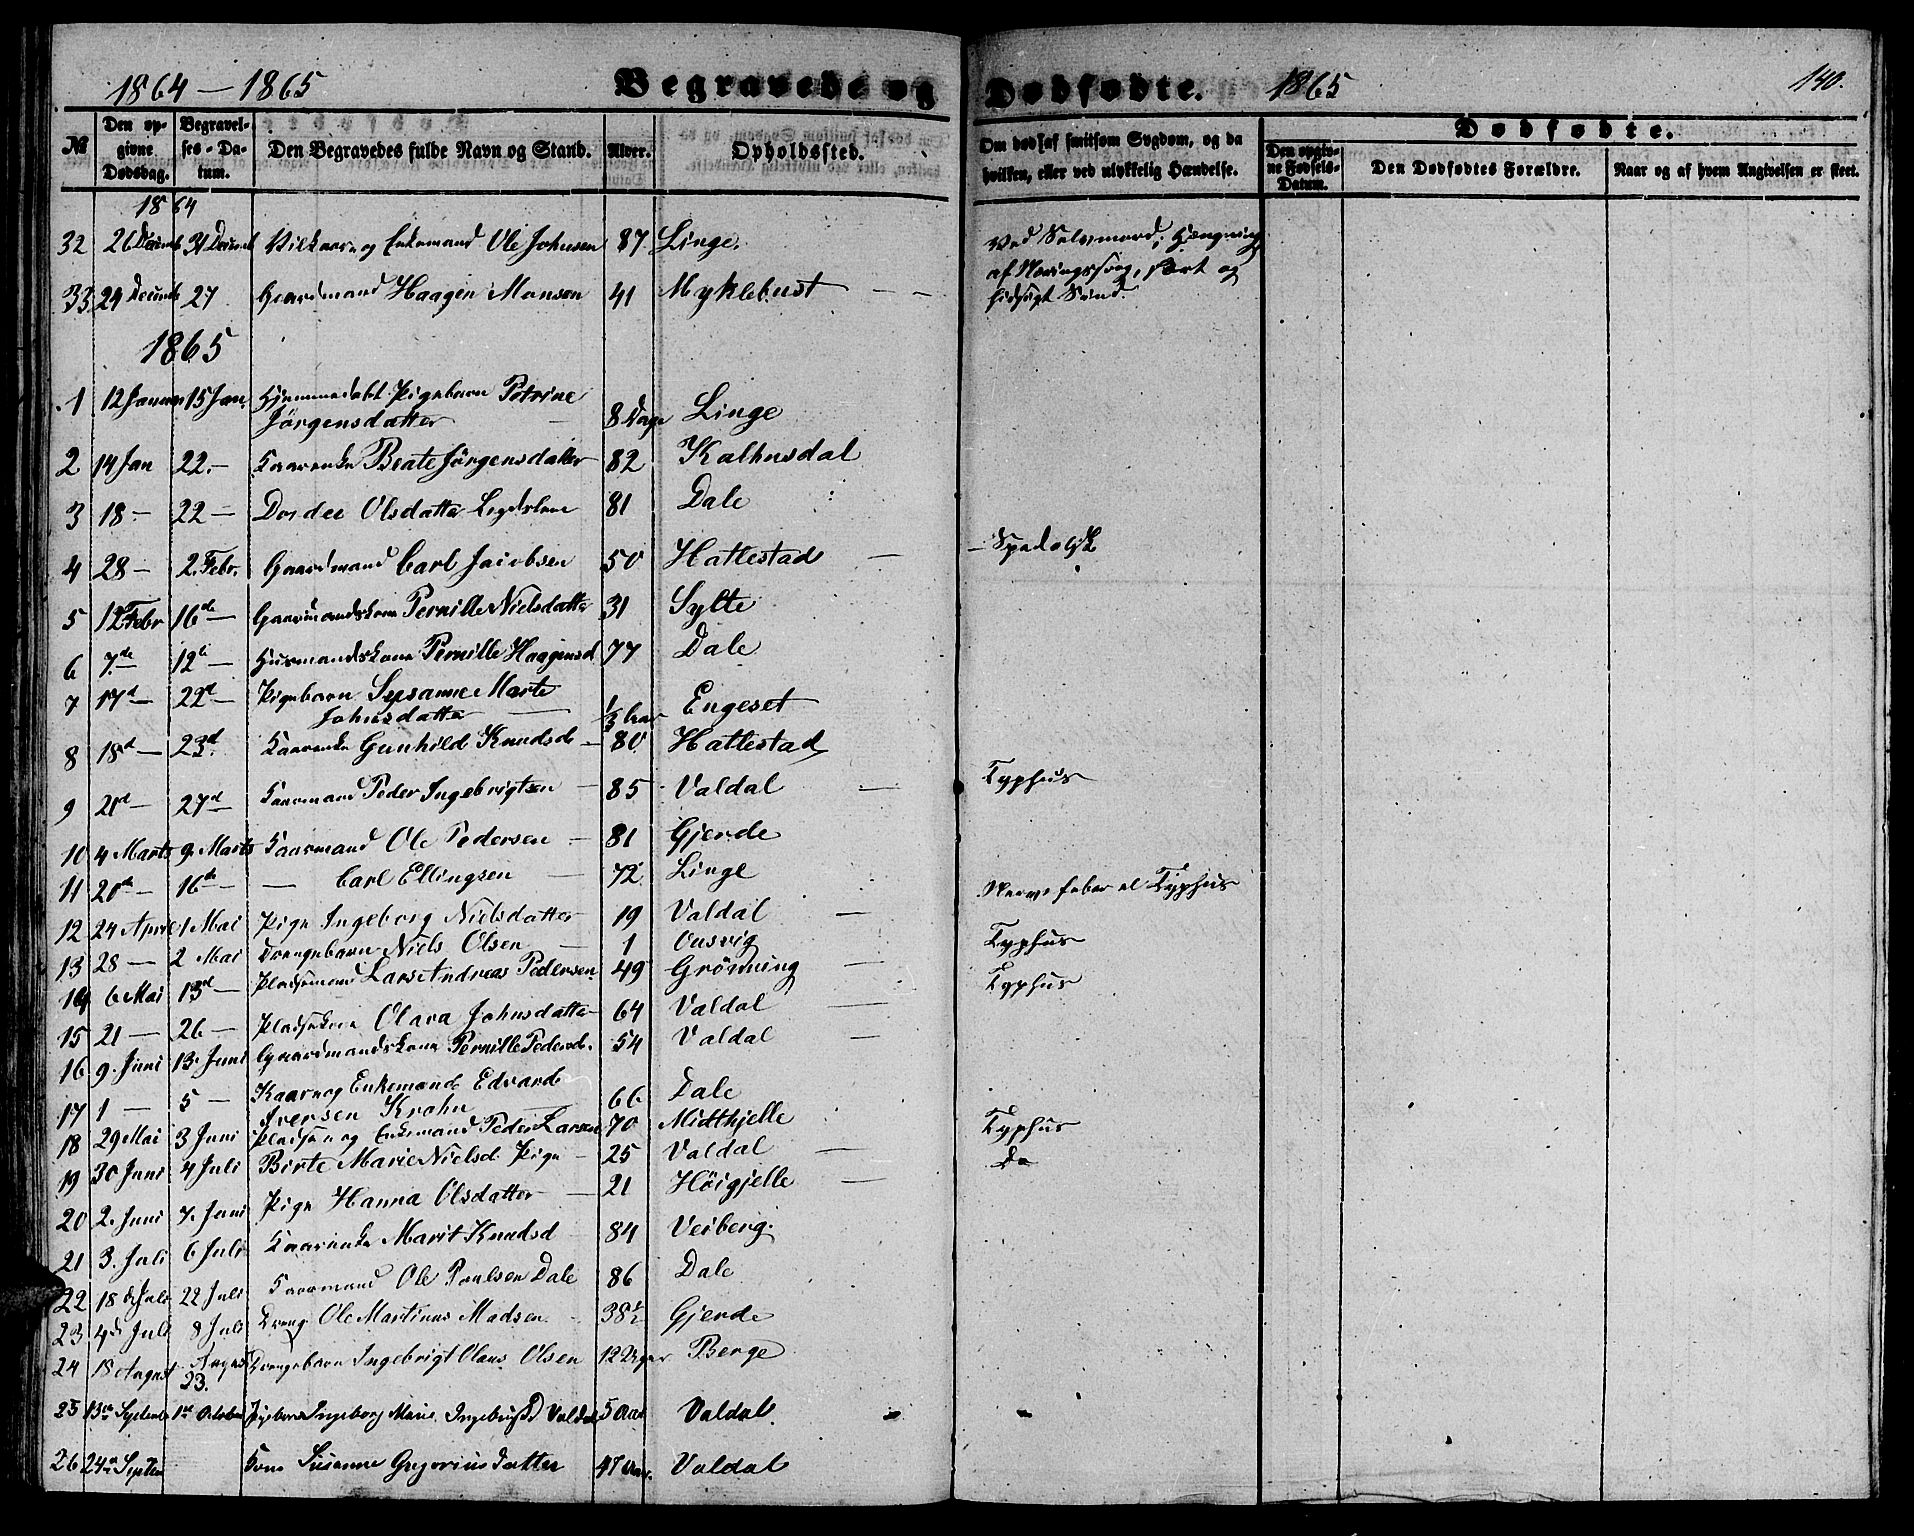 1864 – 1865 Begravede og Dødfødte. 1865 140.
№ Den opgivne Dødsdag. Begravelses-Datum. Den Begravedes fulde Navn og Stand. Alder. Opholdssted. Om død af smitsom Sygdom, og da hvilken, eller ved ulykkelig Hændelse. Dødfødte. Den opgivne Fødsels-Datum. Den Dødfødtes Forældre. Naar og af hvem Angivelsen er skeet.
1864
32 26 Decemb 31 Decemb Vilkaar og Enkemand Ole Johnsen 87 Linge. Ved Selvmord, Hængning
af Næringssorg, svært og
hidsigt Sind.
33 24 Decemb 27 Gaardmand Haagen Monsen 41 Myklebust
1865
1 12 Januar 15 Jan. Hjemmedøbt Pigebarn Petrine
Jørgensdatter 8 Dage Linge
2 14 Jan 22 – Kaarenke Beate Jørgensdatter 82 Kalhusdal
3 18 – 22 – Dordee Olsdatter Lægdslem 81 Dale
4 28 – 2. Febr. Gaardmand Carl Jacobsen 50 Hattestad – Spedalsk
5 12 Febr 16de – Gaardmandskone Pernille Nielsdatter 31 Sylte
6 7de – 12te – Husmandskone Pernille Haagensd 77 Dale
7 17d – 22d – Pigebarn Sysanne Marte
Johnsdatter 1/3 Aar Engeset
8 18d – 23d Kaarenke Gunhild Knudsd – 80 Hattestad
9 21d – 27d Kaarmand Peder Ingebrigtsen – 85 Valdal – Typhus
10 4 Marts 9. Marts Kaarmand Ole Pedersen – 81 Gjerde
11 20de – 16de – – Carl Ellingsen – 72 Linge
12 24 April 1 Mai Pige Ingeborg Nielsdatter 19 Valdal – Nervefeber el Typhus
13 28 – 2 Mai Drengebarn Niels Olsen – 1 Uusvig Typhus
14 6 Mai 13d – Pladsmand Lars Andreas Pedersen 49 Grønning – Typhus
15 21 – 26 – Pladskone Olava Johnsdatter 64 Valdal –
16 9. Juni 13. Juni Gaardmandskone Pernille Pedersd. 54 Valdal –
17 1 – 5 – Kaar og Enkemand Edvard
Iversen Krohn – 66 Dale
18 29 Mai 3 Juni Pladsm og Enkemand Peder Larsen 70 Midthjelle Typhus
19 30 Juni 4 Juli Birte Marie Nielsd. Pige – 25 Valdal – Do
20 2. Juni 7. Juni Pige Hanna Olsdatter – 21 Høigjelle –
21 3. Juli 6 Juli Kaarenke Marit Knudsd 84 Veiberg.
22 18 d Juli 22 Juli Kaarmand Ole Poulsen Dale 86 Dale
23 4d Juli 8 Juli Dreng Ole Martinus Madsen Gjerde
24 18 August August 23. Drengebarn Ingebrigt Olaus Olsen 12 Uger Berge
25 13de Septemb 1ste October Pigebarn Ingeborg Marie Valdal 5 Aar Valdal.
26 24de Septem Kone Susanne Gregoriusdatter 47 Aar. Valdal